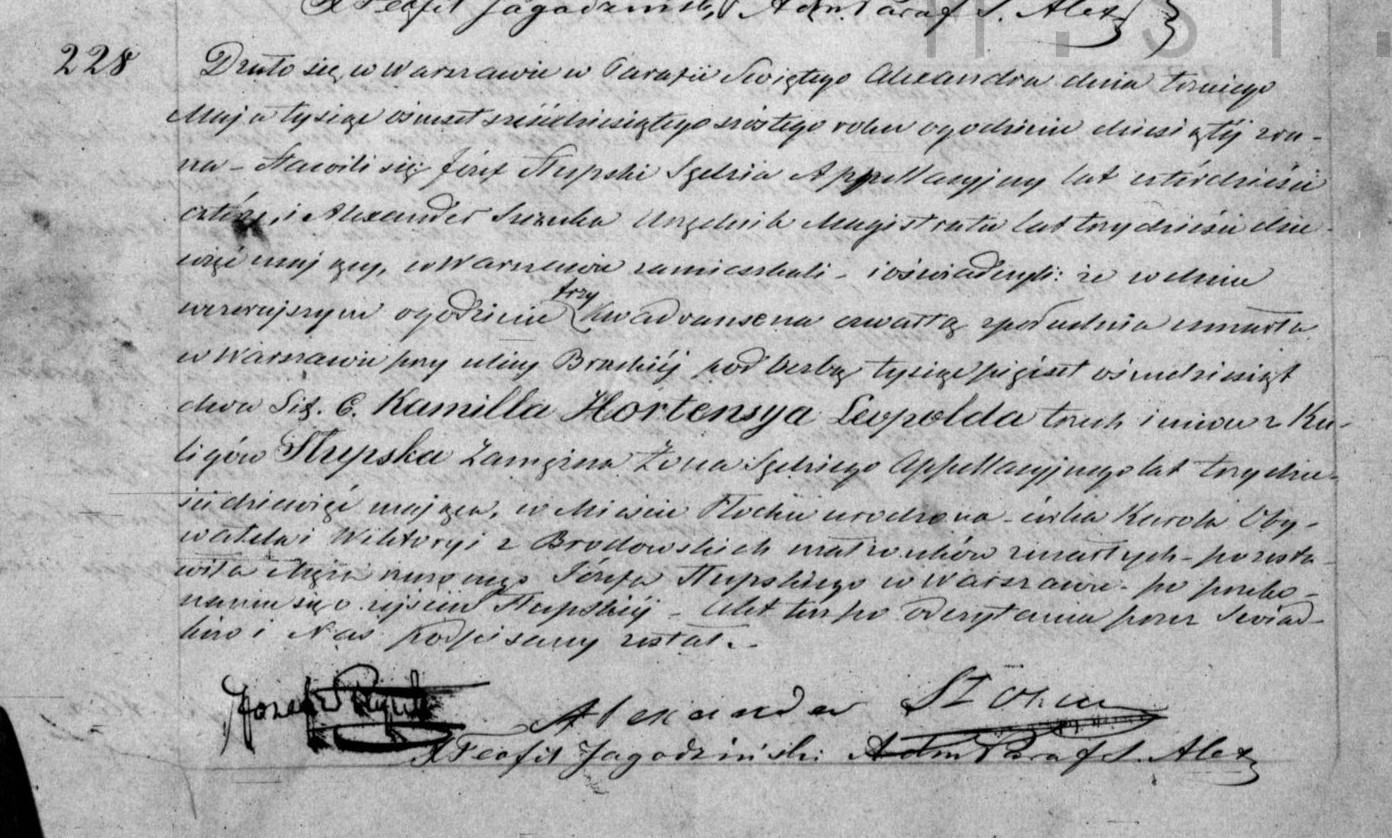 X Teofil Jagodziński Adm. Paraf S. Alex
228 Działo się w Warszawie w Parafii Świętego Alexandra dnia trzeciego
Maja tysiąc ośmset sześćdziesiątego szóstego roku o godzinie dziesiątéj zra-
na – Stawili się Józef Słupski Sędzia Appellacyjny lat czterdzieści
cztéry, i Alexander Urzędnik Magistratu lat trzydzieści dzie-
więć mający, w Warszawie zamieszkali – i oświadczyli: że w dniu
wczorajszym o godzinie trzy Kwadransena czwartą zpołudnia umarła
w Warszawie przy ulicy Brackiéj pod liczbą tysiąc pięćset ośmdziesiąt
dwa Lit. C. Kamilla Hortensya Leopolda trzech imion z Ku-
ligów Słupska Zamężna Żona Sędziego Appellacyjnego lat trzydzie-
ści dziewięć mająca, w Mieście Płocku urodzona – córka Karola Oby-
watela i Wiktoryi z Brodowskich małżonków zmarłych – pozosta-
wiła Męża Józefa Słupskiego w Warszawie – po przeko-
naniu się o zejściu Słupskiéj – Akt ten po odczytaniu przez Świad-
ków i Nas podpisany został. –
Józef Słupski Alexander
X Teofil Jagodziński Adm Paraf S. Alex